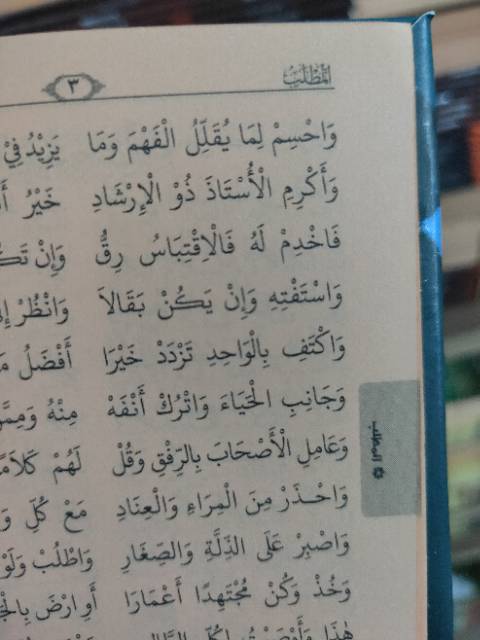 المَطْلَبُ
٣
وَاحْسِمْ لِمَا يُقَلِّلُ الْفَهْمَ وَمَا يَزِيْدُ فِيْ
وَأَكْرِمِ الْأُسْتَاذَ ذُوْ الْإِرْشَادِ خَيْرُ
فَاخْدِمْ لَهُ فَالْاِقْتِبَاسُ رِقُّ وَإِنْ
وَاسْتَفْتِهِ وَإِنْ يَكُنْ بَقَالَا وَانْظُرْ
وَاكْتَفِ بِالْوَاحِدِ تَزْدَدْ خَيْرَا أَفْضَلُ
وَجَانِبِ الْحَيَاءَ وَاتْرُكْ أَنْفَهْ مِنْهُ
وَعَامِلِ الْأَصْحَابَ بِالرِّفْقِ وَقُلْ لَهُمْ
وَاحْذَرْ مِنَ الْمِرَاءِ وَالْعِنَادِ مَعْ كُلِّ
وَاصْبِرْ عَلَى الذِّلَّةِ وَالصَّغَارِ وَاطْلُبْ
وَخُذْ وَكُنْ مُجْتَهِدًا أَعْمَارَا أَوِ ارْضَ
المطلب